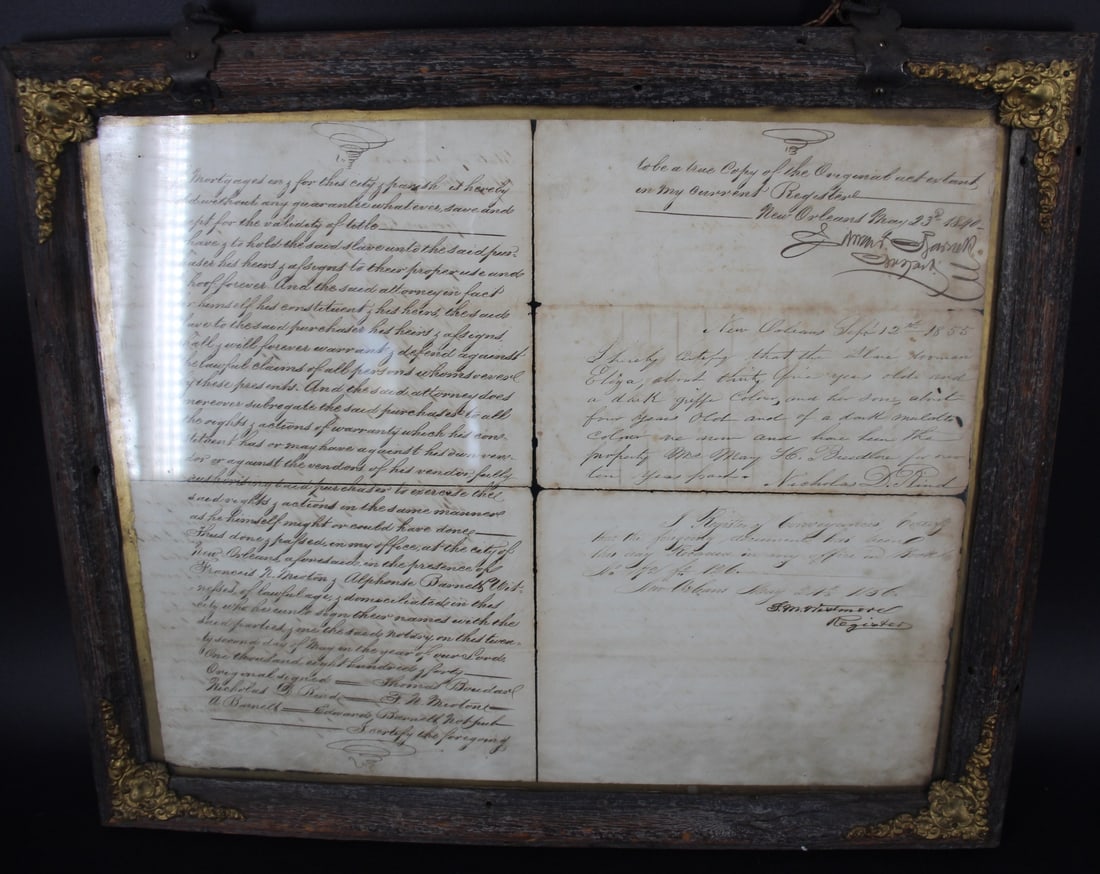 Mortgages in & for this city & parish is hereby
without any guarantee whatever, save and
for the validity of title
have & to hold the said slave unto the said pur-
his heirs & assigns to their proper use and
forever. And the said attorney in fact
himself his constituent & his heirs, the said
to the said purchaser his heirs & assigns
& will forever warrant & defend against
lawful claims of all persons whomsoever
these presents. And the said attorney does
moreover subrogate the said purchaser to all
rights & actions of warranty which his con-
has or may have against his own ven-
dor or against the vendors of his vendor fully
authorising said purchaser to exercise the
said rights & actions in the same manner
as he himself might or could have done
Thus done & passed in my office at the city of
New Orleans aforesaid in the presence of
Francois N. & Alphonse Barnett, Wit-
nesses of lawful age & domiciliated in this
city who hereunto sign their names with the
said parties & me the said notary on this twen-
ty second day of May in the year of our Lord
One thousand eight hundred & forty
Original signed Thomas
Nicholas D.
A Barnett Edward Barnett Not pub
I certify the foregoing
to be a true Copy of the Original act extant
in my Current Register
New Orleans May 23d 1840
Barnett
New Orleans Sept 12th 1855
I hereby certify that the Slave Woman
Eliza, about thirty five years old and
a dark griffe Colour, and her son, about
four years old and of a dark mulatto
Colour are now and have been the
property Mrs Mary H. for over
ten years past Nicholas D.
Register Conveyances Certify
that the foregoing document has been
this day Recorded in my office in
New Orleans May 1856
Register